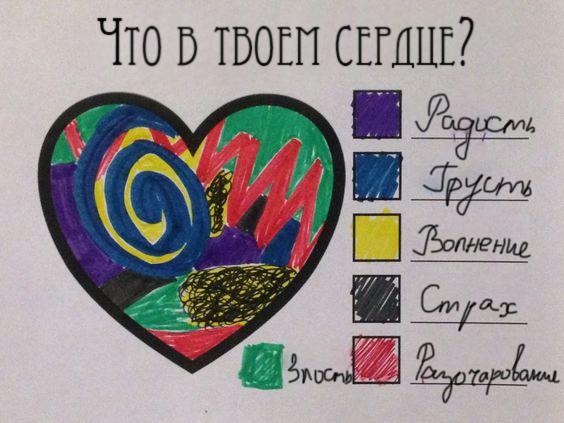 Что в твоем сердце?
Радость
Грусть
Волнение
Страх
Злость
Разочарование